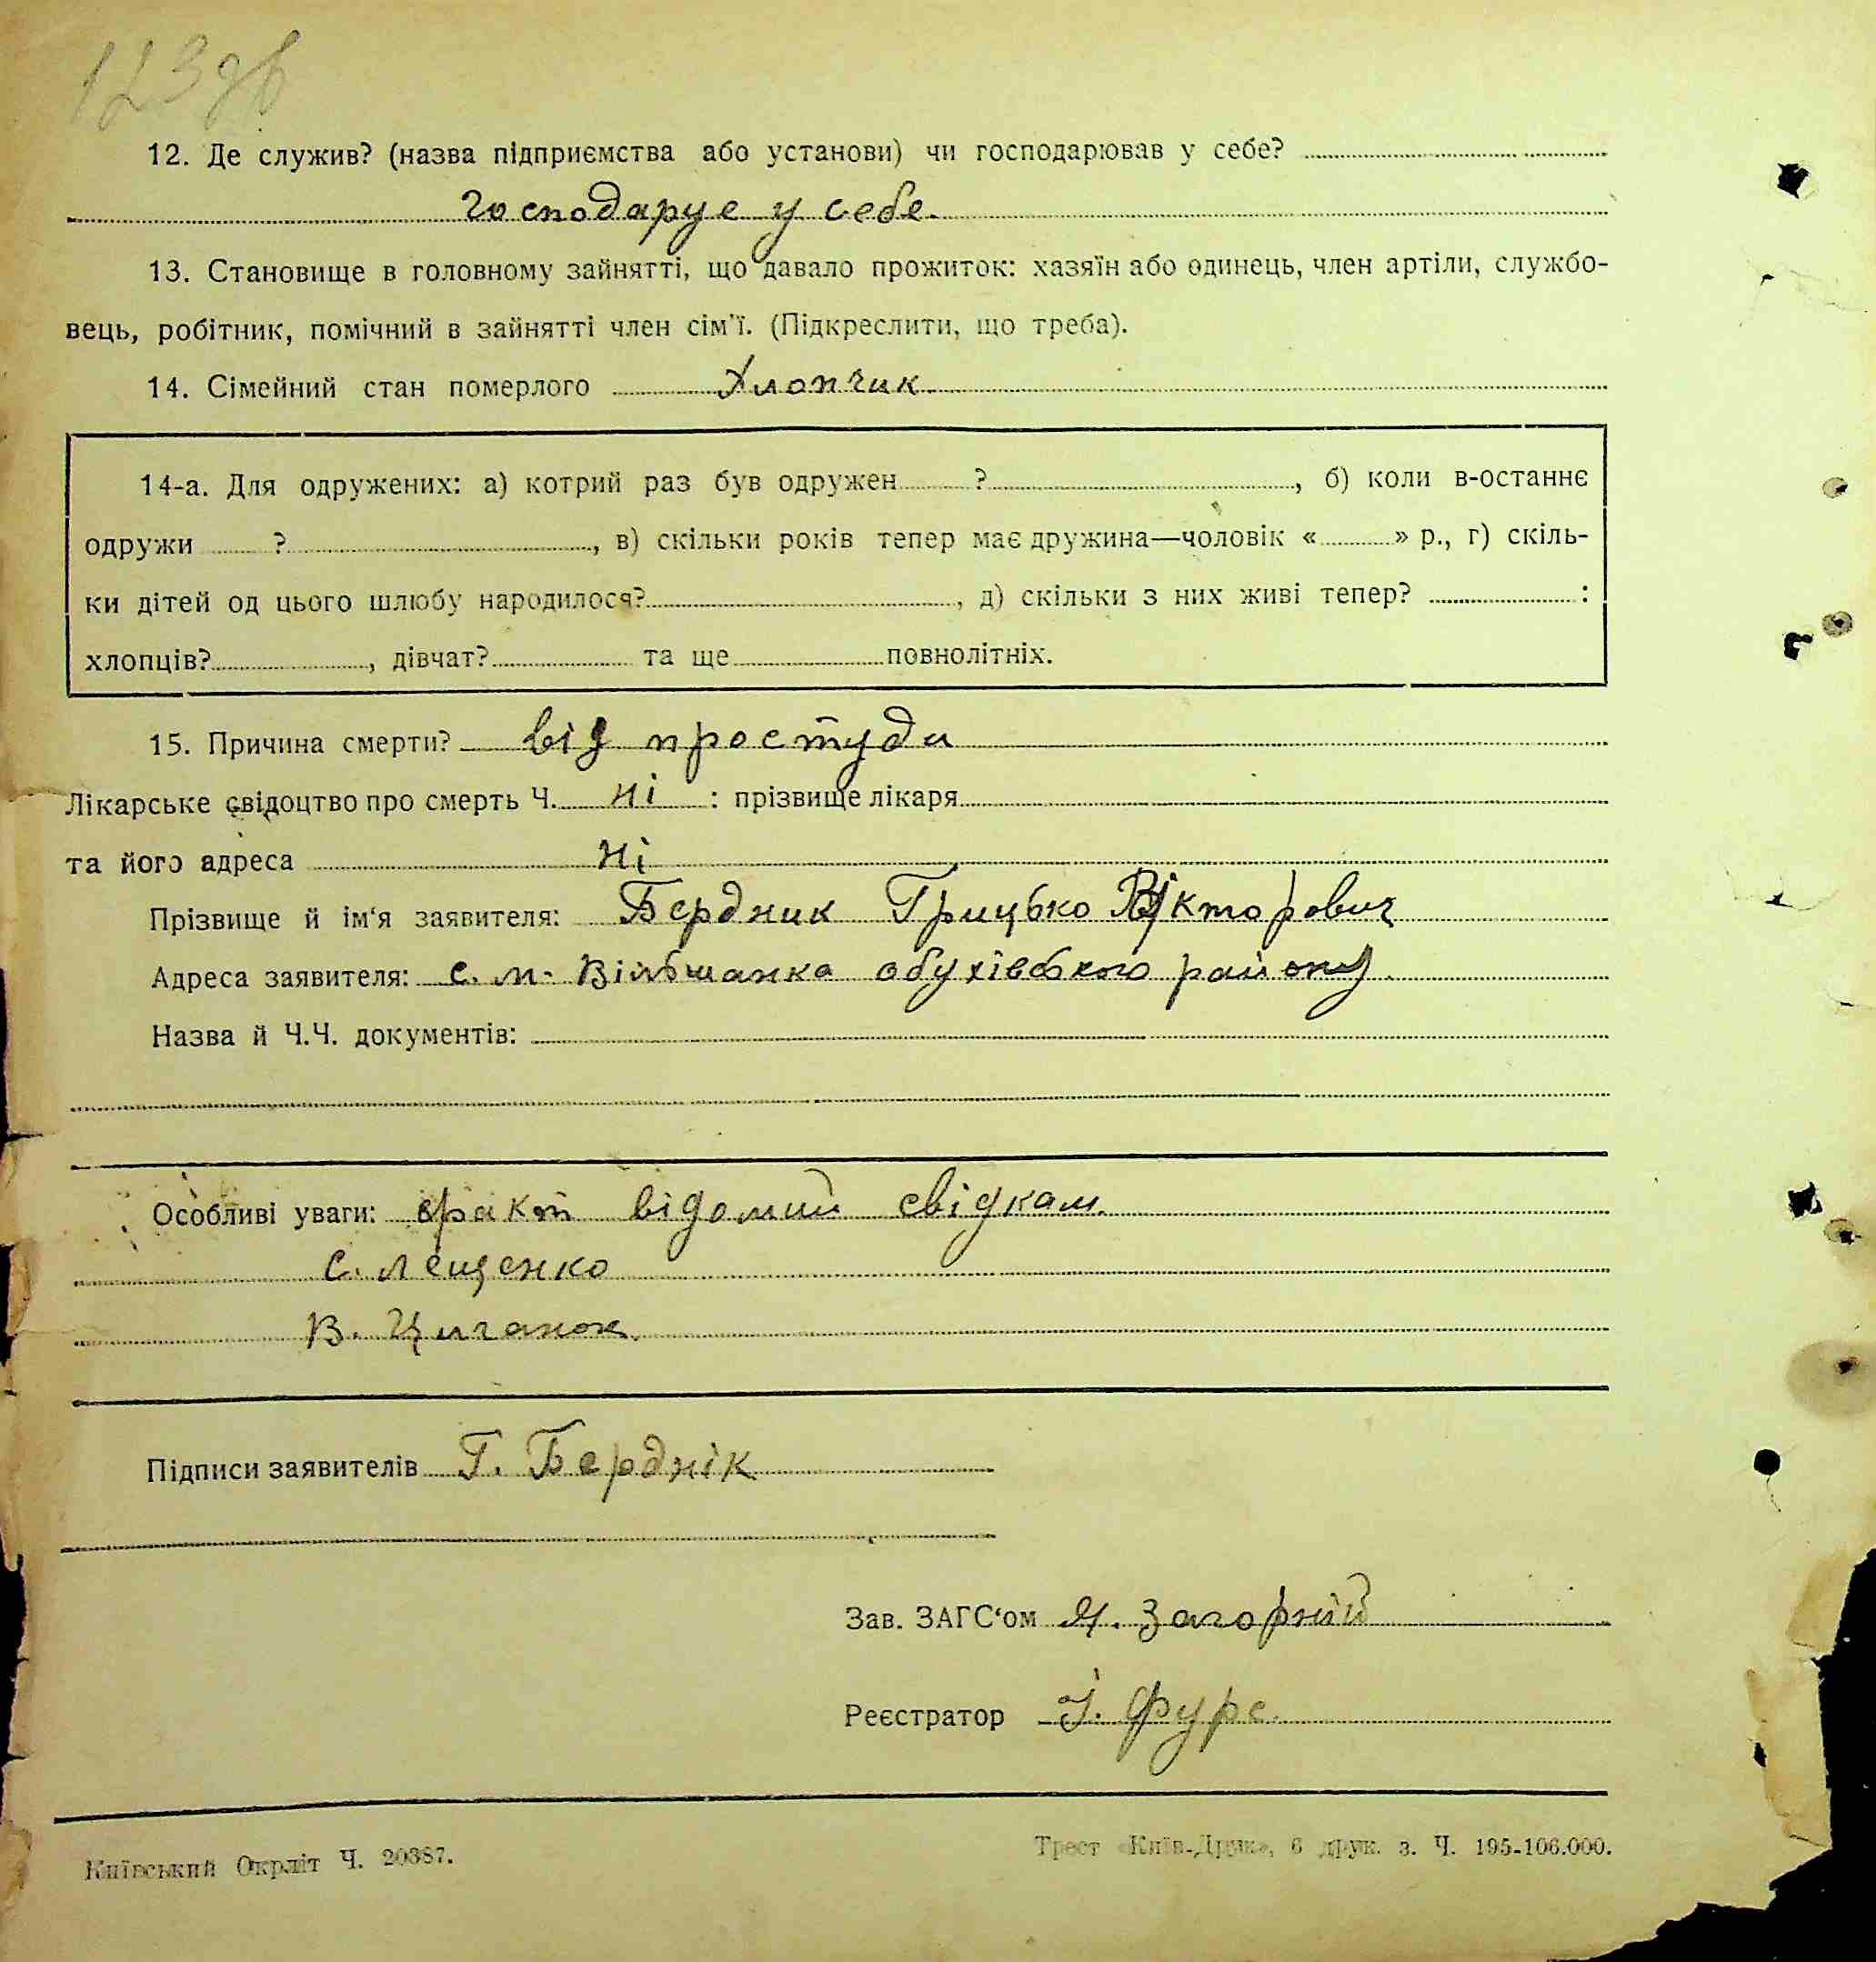 123зв
12. Де служив? (назва підприємства або установи) чи господарював у себе?
господарує у себе.
13. Становище в головному зайнятті, що давало прожиток: хазяїн або одинець, член артіли, службо-
вець, робітник, помічний в зайнятті член сім'ї. (Підкреслити, що треба).
14. Сімейний стан померлого Хлопчик
14-а. Для одружених: а) котрий раз був одружен ? , б) коли в-останнє
одружи ? , в) скільки років тепер має дружина—чоловік « » р., г) скіль-
ки дітей од цього шлюбу народилося? , д) скільки з них живі тепер? :
хлопців? , дівчат? та ще повнолітніх.
15. Причина смерти? від простуди
Лікарське свідоцтво про смерть Ч. ні : прізвище лікаря
та його адреса ні
Прізвище й ім'я заявителя: Бердник Грицько Вікторович
Адреса заявителя: с. м. Вільшанка обухівського району
Назва й Ч.Ч. документів:
Особливі уваги: факт відомий свідкам.
С. Лещенко
В. Циганок.
Підписи заявителів Г. Берднік
Зав. ЗАГС'ом Я. Загорний
Реєстратор І. Фурс.
Київський Окрліт Ч. 20387.
Трест «Київ-Друк», 6 друк. з. Ч. 195-106.000.